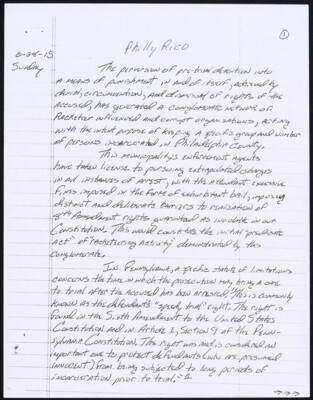 ①
Philly RICO
6-28-15
Sunday
The perversion of pre-trial detention into
a means of punishment in and of itself, achieved by
denial, circumvention, and dismissal of rights of the
accused, has generated a conglomerate network of
Racketeer influenced and corrupt organizations, acting
with the intent purpose of keeping a specific group and number
of persons incarcerated in Philadelphia County.
This municipality's enforcement agents
have taken license to pursuing extrapolated charges
in all instances of arrest, with the attendant excessive
fines imposed in the form of exhorbitant bail, imposing
distinct and deliberate barriers to realization of
8th Amendment rights guaranteed as inviolate in our
Constitution. This would constitute the initial "predicate
act" of "racketeering activity" demonstrated by this
conglomerate.
In Pennsylvania, a specific statute of limitations
concerns the time in which the prosecution may bring a case
to trial after the accused has been arrested. This is commonly
known as the defendants "speedy trial" right. The right is
found in the Sixth Amendment to the United States
Constitution and in Article 1, Section 9 of the Penn-
sylvania Constitution. The right was and is considered an
important one to protect defendants (who are presumed
innocent) from being subjected to long periods of
incarceration prior to trial. -1